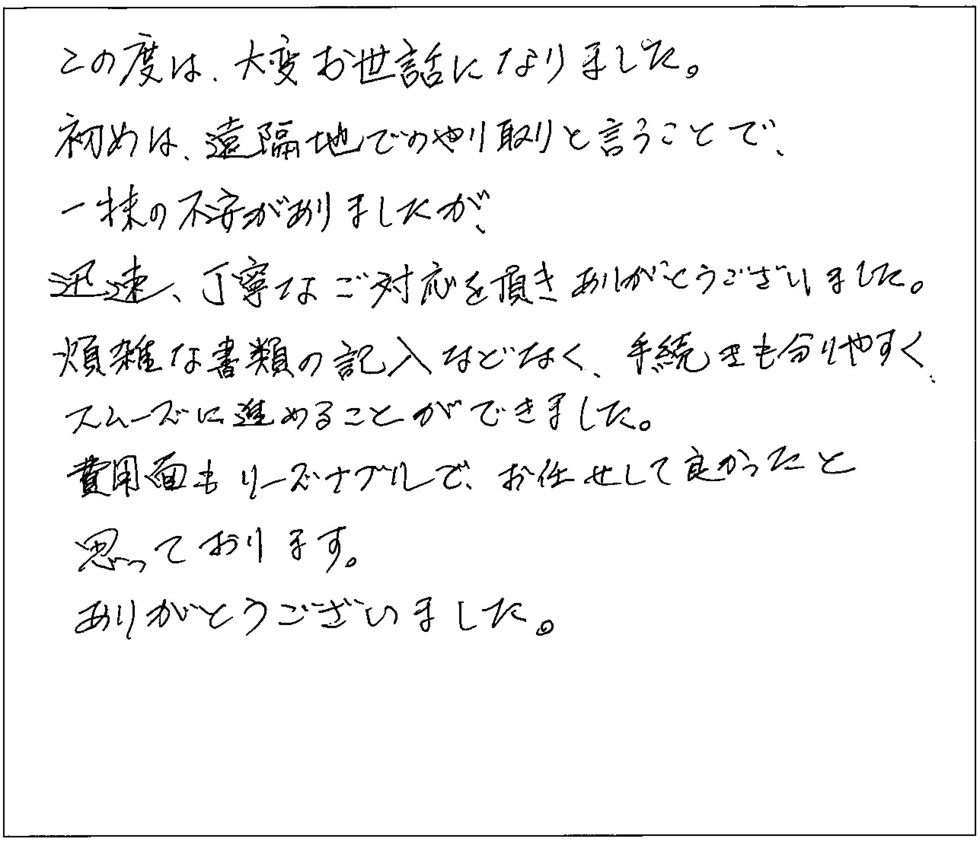 この度は、大変お世話になりました。
初めは、遠隔地でのやり取りと言うことで、
一抹の不安がありましたが、
迅速、丁寧なご対応を頂きありがとうございました。
煩雑な書類の記入などなく、手続きも分りやすく、
スムーズに進めることができました。
費用面もリーズナブルで、お任せして良かったと
思っております。
ありがとうございました。